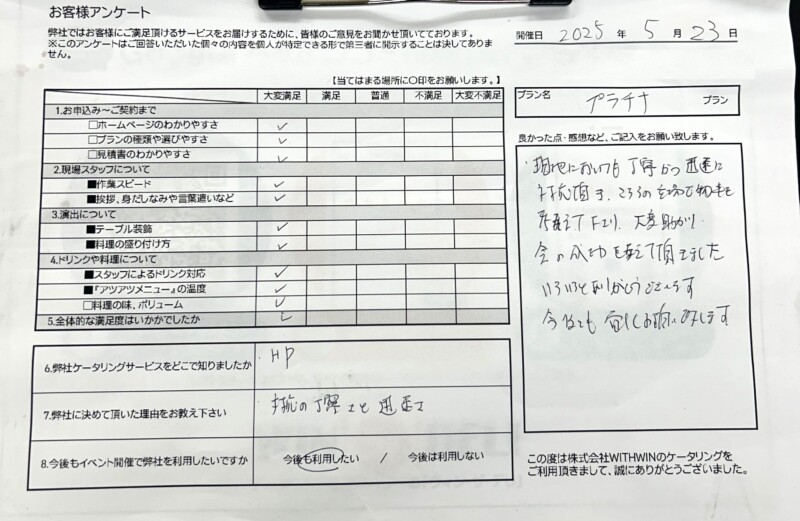 お客様アンケート
弊社ではお客様にご満足頂けるサービスをお届けするために、皆様のご意見をお聞かせ頂いております。
※このアンケートはご回答いただいた個々の内容を個人が特定できる形で第三者に開示することは決してありません。
開催日 2025 年 5 月 23 日
【当てはまる場所に○印をお願いします。】
大変満足 満足 普通 不満足 大変不満足
1.お申込み～ご契約まで
□ホームページのわかりやすさ ✓
□プランの種類や選びやすさ ✓
□見積書のわかりやすさ ✓
2.現場スタッフについて
■作業スピード ✓
■挨拶、身だしなみや言葉遣いなど ✓
3.演出について
■テーブル装飾 ✓
■料理の盛り付け方 ✓
4.ドリンクや料理について
■スタッフによるドリンク対応 ✓
■『アツアツメニュー』の温度 ✓
□料理の味、ボリューム ✓
5.全体的な満足度はいかがでしたか ✓
6.弊社ケータリングサービスをどこで知りましたか HP
7.弊社に決めて頂いた理由をお教え下さい 対応の丁寧さと迅速さ
8.今後もイベント開催で弊社を利用したいですか 今後も利用したい / 今後は利用しない
プラン名 プラチナ プラン
良かった点・感想など、ご記入をお願い致します。
現地においても丁寧かつ迅速に
対応頂き、
下さり、大変助かり
会の成功を迎えて頂きました
いろいろとありがとうございます
今後とも宜しくお願い致します
この度は株式会社WITHWINのケータリングを
ご利用頂きまして、誠にありがとうございました。